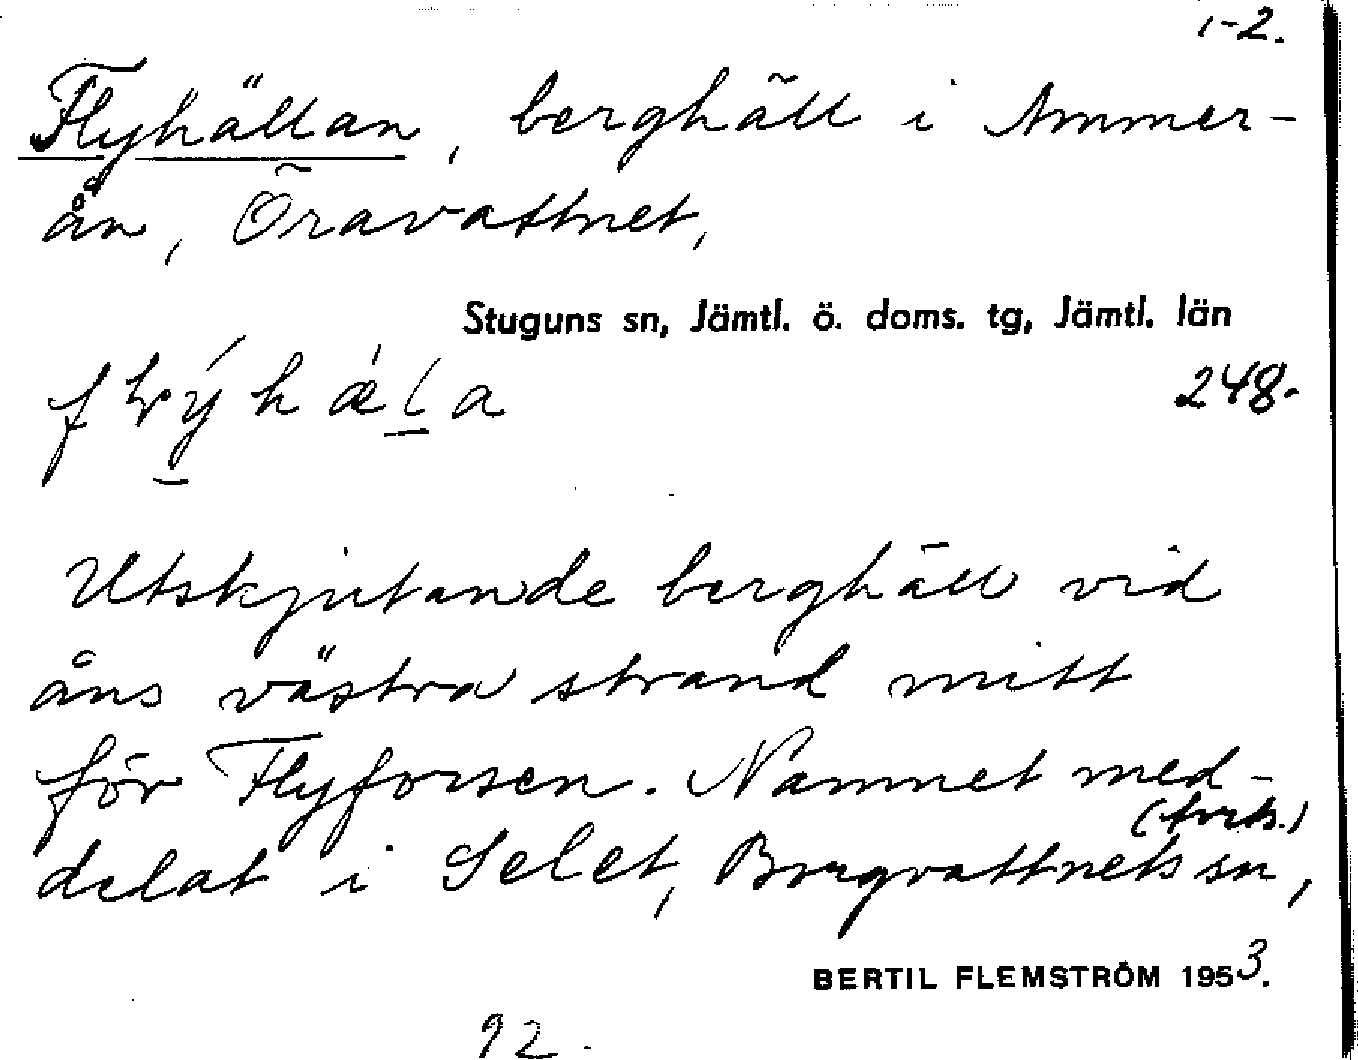 1-2.
Flyhällan, berghäll i Ammer-
ån, Öravattnet,
Stuguns sn, Jämtl. ö. doms. tg, Jämtl. län
248.
Utskjutande berghäll vid
åns västra strand mitt
för Flyforsen. Namnet med-
(forts.)
delat i Selet, Borgvattnets sn,
BERTIL FLEMSTRÖM 1953.
92.